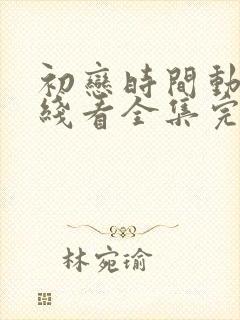 初戀時間動
綫看全集完
林宛瑜